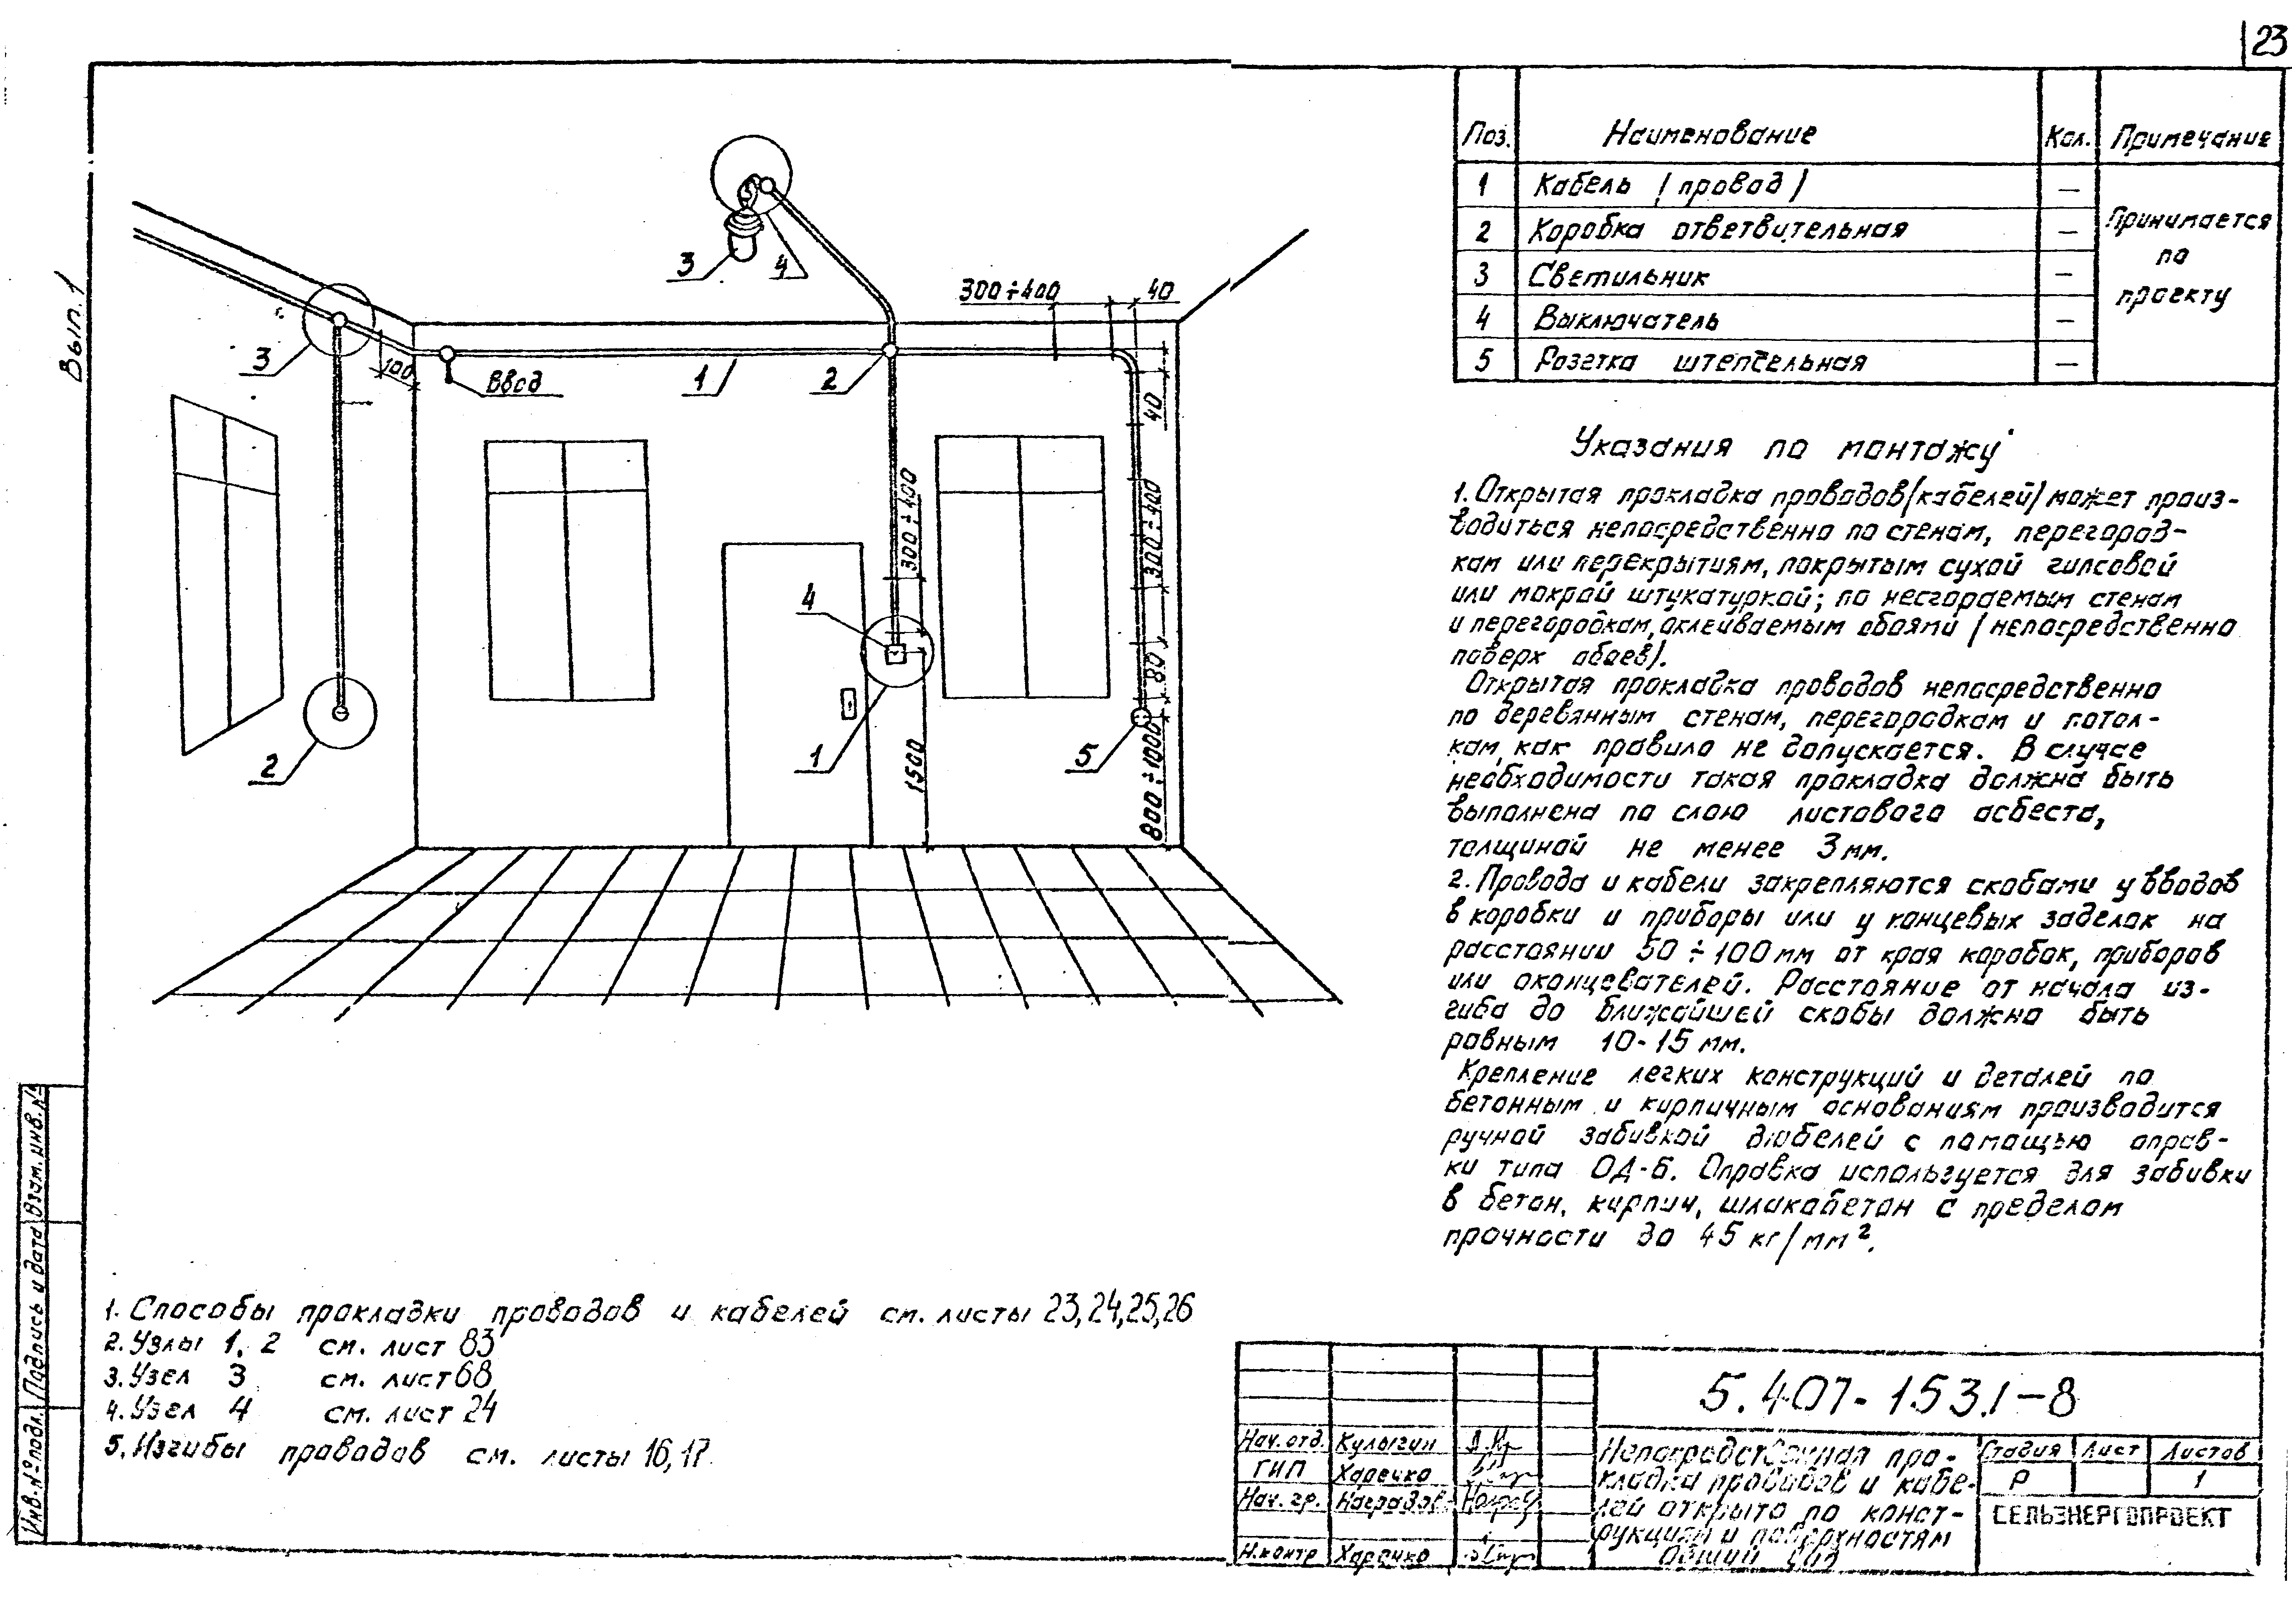 23
Вып. 1
Поз. Наименование Кол. Примечание
1 Кабель (провод) —
2 Коробка ответвительная —
3 Светильник —
4 Выключатель —
5 Розетка штепсельная —
Принимается
по
проекту
3
4
300÷400
40
3
100
Ввод
1
2
40
300÷400
300÷400
4
80
2
1
1500
5
800÷1000
Указания по монтажу
1. Открытая прокладка проводов (кабелей) может произ-
водиться непосредственно по стенам, перегород-
кам или перекрытиям, покрытым сухой гипсовой
или мокрой штукатуркой; по несгораемым стенам
и перегородкам, оклеиваемым обоями (непосредственно
поверх обоев).
Открытая прокладка проводов непосредственно
по деревянным стенам, перегородкам и потол-
кам, как правило не допускается. В случае
необходимости такая прокладка должна быть
выполнена по слою листового асбеста,
толщиной не менее 3 мм.
2. Провода и кабели закрепляются скобами у вводов
в коробки и приборы или у концевых заделок на
расстоянии 50÷100 мм от края коробок, приборов
или оконцевателей. Расстояние от начала из-
гиба до ближайшей скобы должно быть
равным 10-15 мм.
Крепление легких конструкций и деталей по
бетонным и кирпичным основаниям производится
ручной забивкой дюбелей с помощью оправ-
ки типа ОД-6. Оправка используется для забивки
в бетон, кирпич, шлакобетон с пределом
прочности до 45 кг/мм².
1. Способы прокладки проводов и кабелей см. листы 23,24,25,26
2. Узлы 1, 2 см. лист 83
3. Узел 3 см. лист 68
4. Узел 4 см. лист 24
5. Изгибы проводов см. листы 16,17.
Инв.№подл. Подпись и дата Взам.инв.№
5.407-153.1-8
Нач.отд. Кулыгин
ГИП Харечко
Нач. гр. Наградов
Н.контр Харечко
Непосредственная про-
кладка проводов и кабе-
лей открыто по конст-
рукциям и поверхностям
Общий вид
Стадия Лист Листов
Р 1
СЕЛЬЭНЕРГОПРОЕКТ